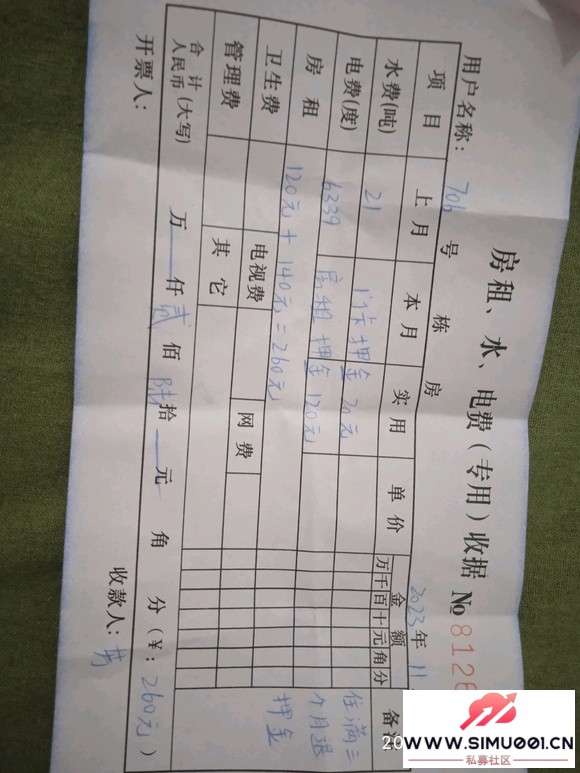 房租、水、电费（专用）收据 № 8126
用户名称： 706 号 栋 房 2023年 11
项目 上月 本月 实用 单价 金额 备注
万 千 百 十 元 角 分
水费(吨) 21 门卡押金20元
电费(度) 6339 房租押金120元
房租 120元+140元=260元
住满三个月退押金
卫生费 电视费 网费
管理费 其它
合计人民币(大写) 万 仟 贰 佰 陆 拾 元 角 分(￥: 260元)
开票人： 收款人：
20
WWW.SIMU001.CN
私募社区